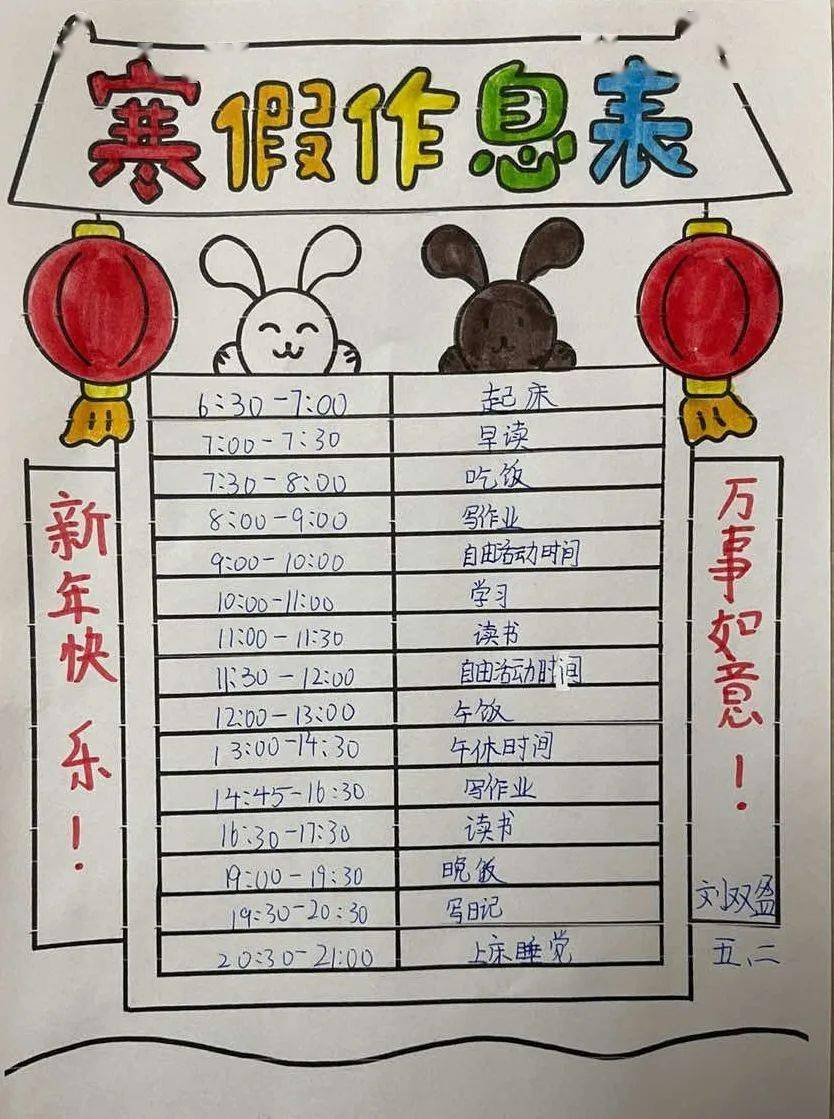 寒假作息表
6:30-7:00 起床
7:00-7:30 早读
7:30-8:00 吃饭
8:00-9:00 写作业
9:00-10:00 自由活动时间
10:00-11:00 学习
11:00-11:30 读书
11:30-12:00 自由活动时间
12:00-13:00 午饭
13:00-14:30 午休时间
14:45-16:30 写作业
16:30-17:30 读书
19:00-19:30 晚饭
19:30-20:30 写日记
20:30-21:00 上床睡觉
新年快乐！
万事如意！
刘双盈
五、二